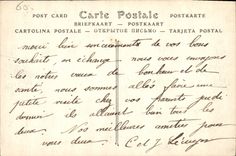 POST CARD Carte Postale POSTKARTE
BRIEFKAART — POSTKAART
CARTOLINA POSTALE — ОТКРЫТОЕ ПИСЬМО — TARJETA POSTAL
merci bien sincèrement de vos bons
souhaits, en échange nous vous envoyons
les notres vœux de bonheur et de
santé, nous sommes allés faire une
petite visite chez vos parents
ils allaient bien tous les
deux. Nos meilleures amitiés pour
vous deux. C et J